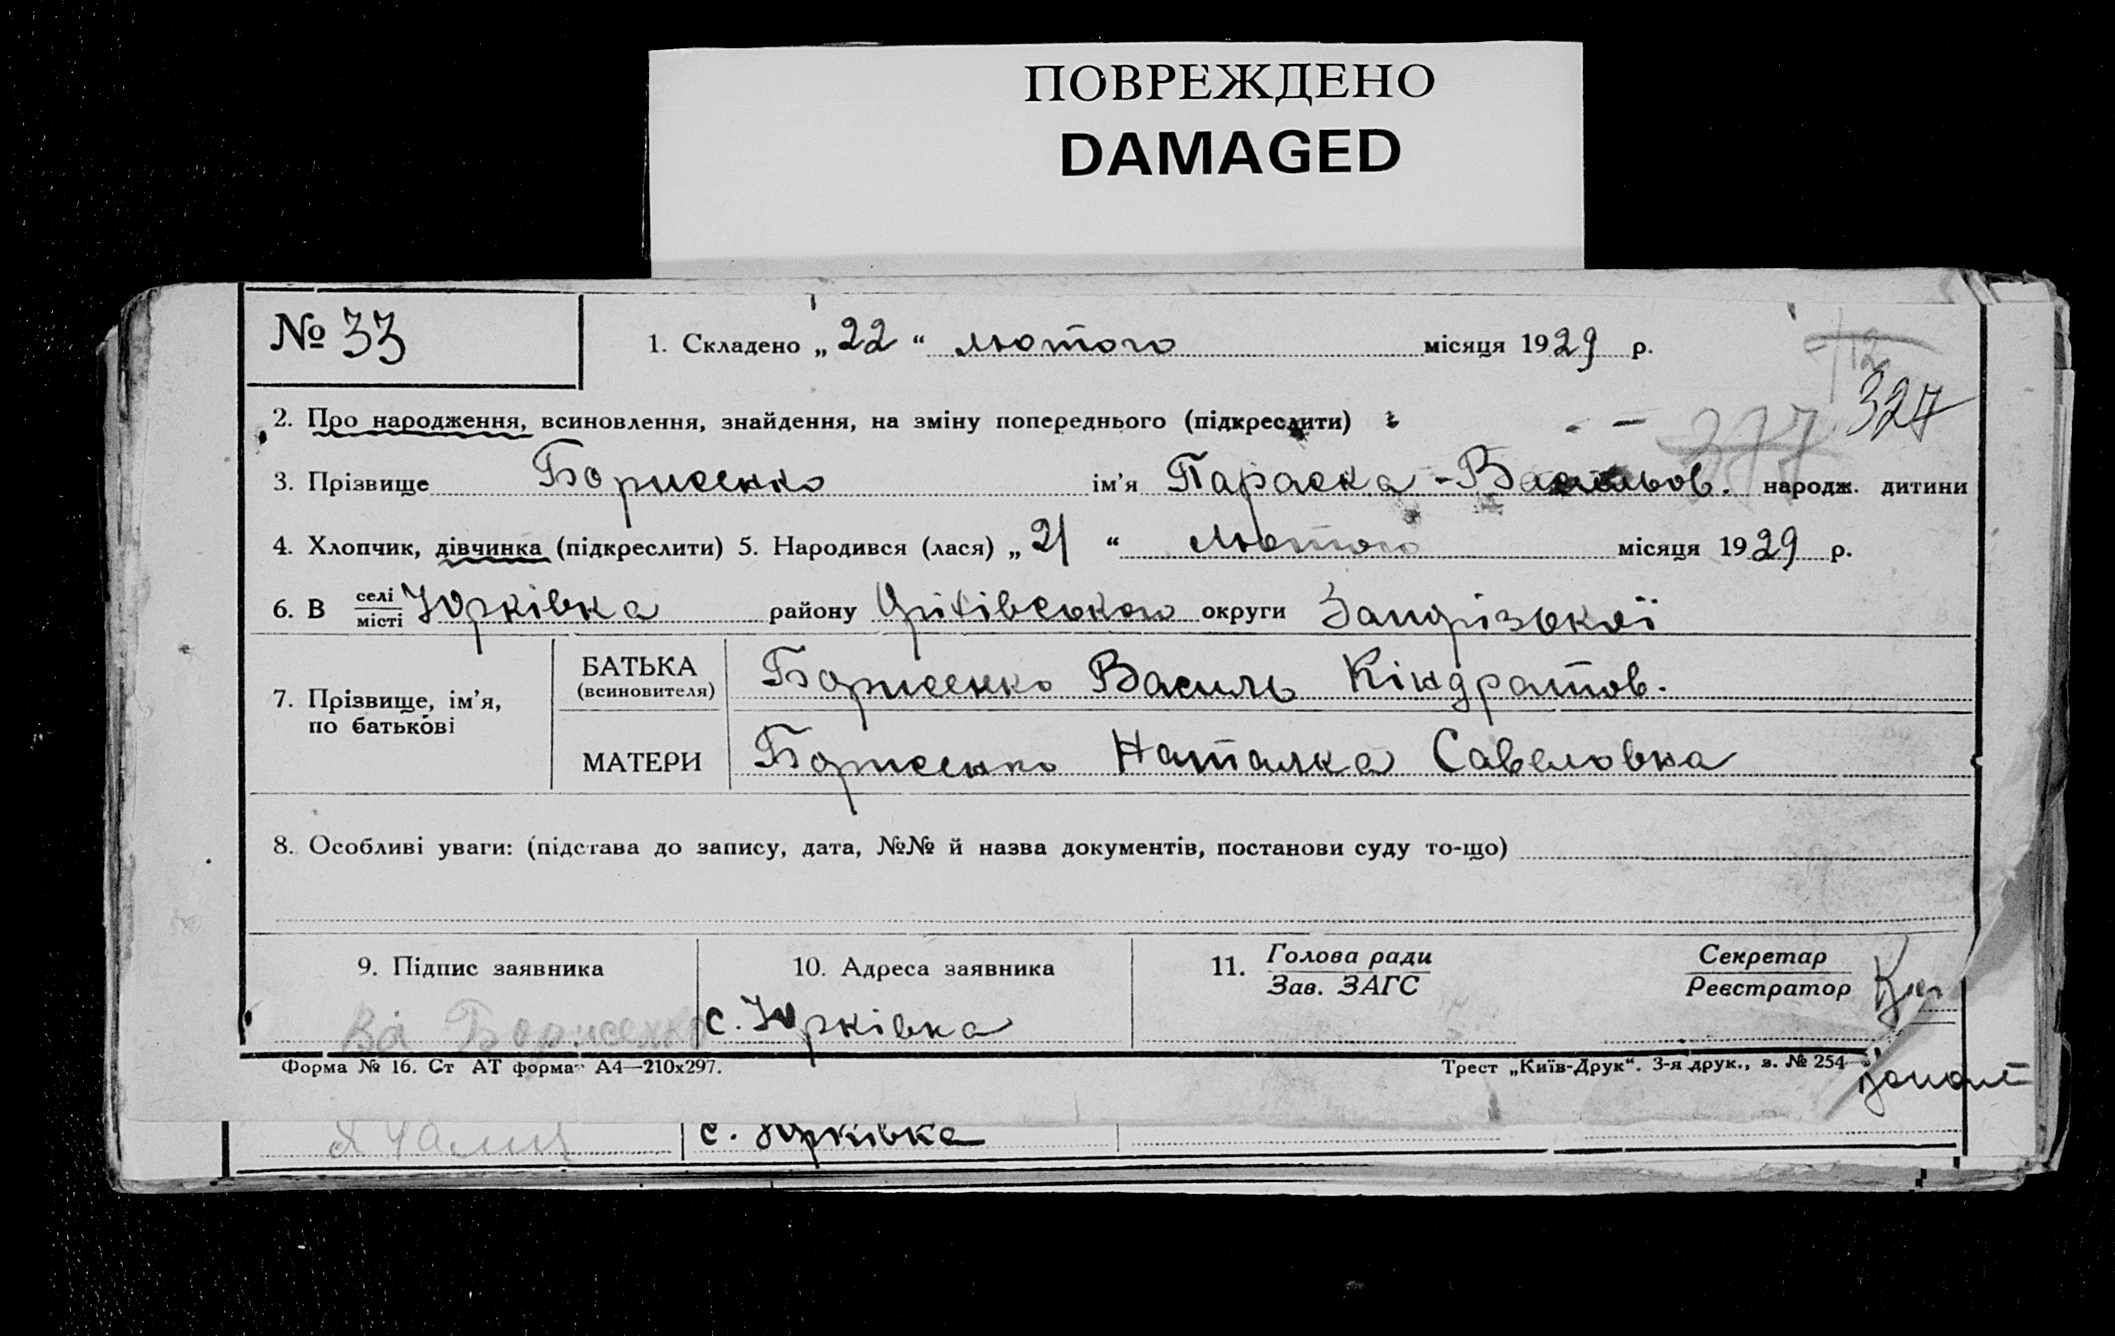 ПОВРЕЖДЕНО
DAMAGED
№ 33
1. Складено „ 22 “ лютого місяця 1929 р.
327
2. Про народження, всиновлення, знайдення, на зміну попереднього (підкреслити)
377
3. Прізвище Борисенко ім'я Параска - Васильов. народж. дитини
4. Хлопчик, дівчинка (підкреслити) 5. Народився (лася) „ 21 “ лютого місяця 1929 р.
6. В селі/місті Юрківка району Оріхівського округи Запорізької
7. Прізвище, ім'я, по батькові
БАТЬКА (всиновителя) Борисенко Василь Кіндратов.
МАТЕРИ Борисенко Наталка Савеловна
8. Особливі уваги: (підстава до запису, дата, №№ й назва документів, постанови суду то-що)
9. Підпис заявника 10. Адреса заявника 11. Голова ради/Зав. ЗАГС Секретар/Реєстратор
Борисенко с. Юрківка
Форма № 16. Ст АТ формат А4—210х297. Трест „Київ-Друк“. 3-я друк., з. № 254
с. Юрківка